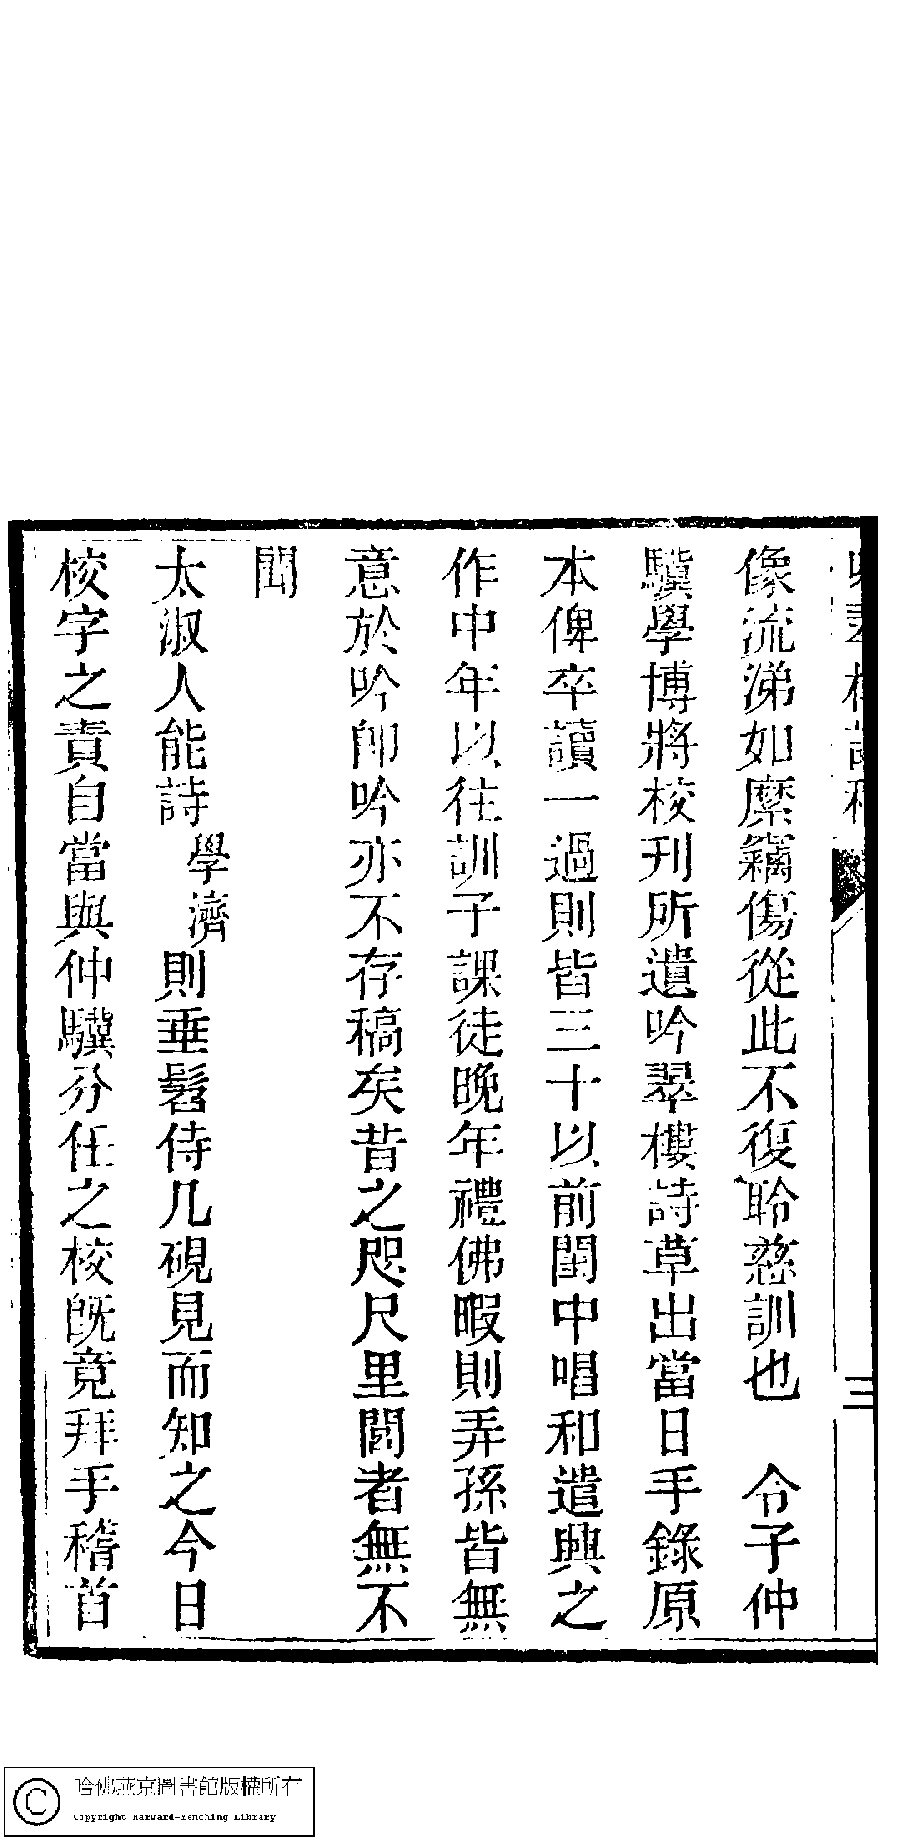 像流涕如縻竊傷從此不復聆慈訓也　令子仲
驥學博將校刊所遺吟翠樓詩草出當日手錄原
本俾卒讀一過則皆三十以前閨中唱和遣興之
作中年以往訓子課徒晚年禮佛暇則弄孫皆無
意於吟卽吟亦不存稿矣昔之咫尺里閭者無不
聞
太淑人能詩學濟則垂髫侍几硯見而知之今日
校字之責自當與仲驥分任之校既竟拜手稽首
三
哈佛燕京圖書館版權所有
Copyright Harvard-Yenching Library